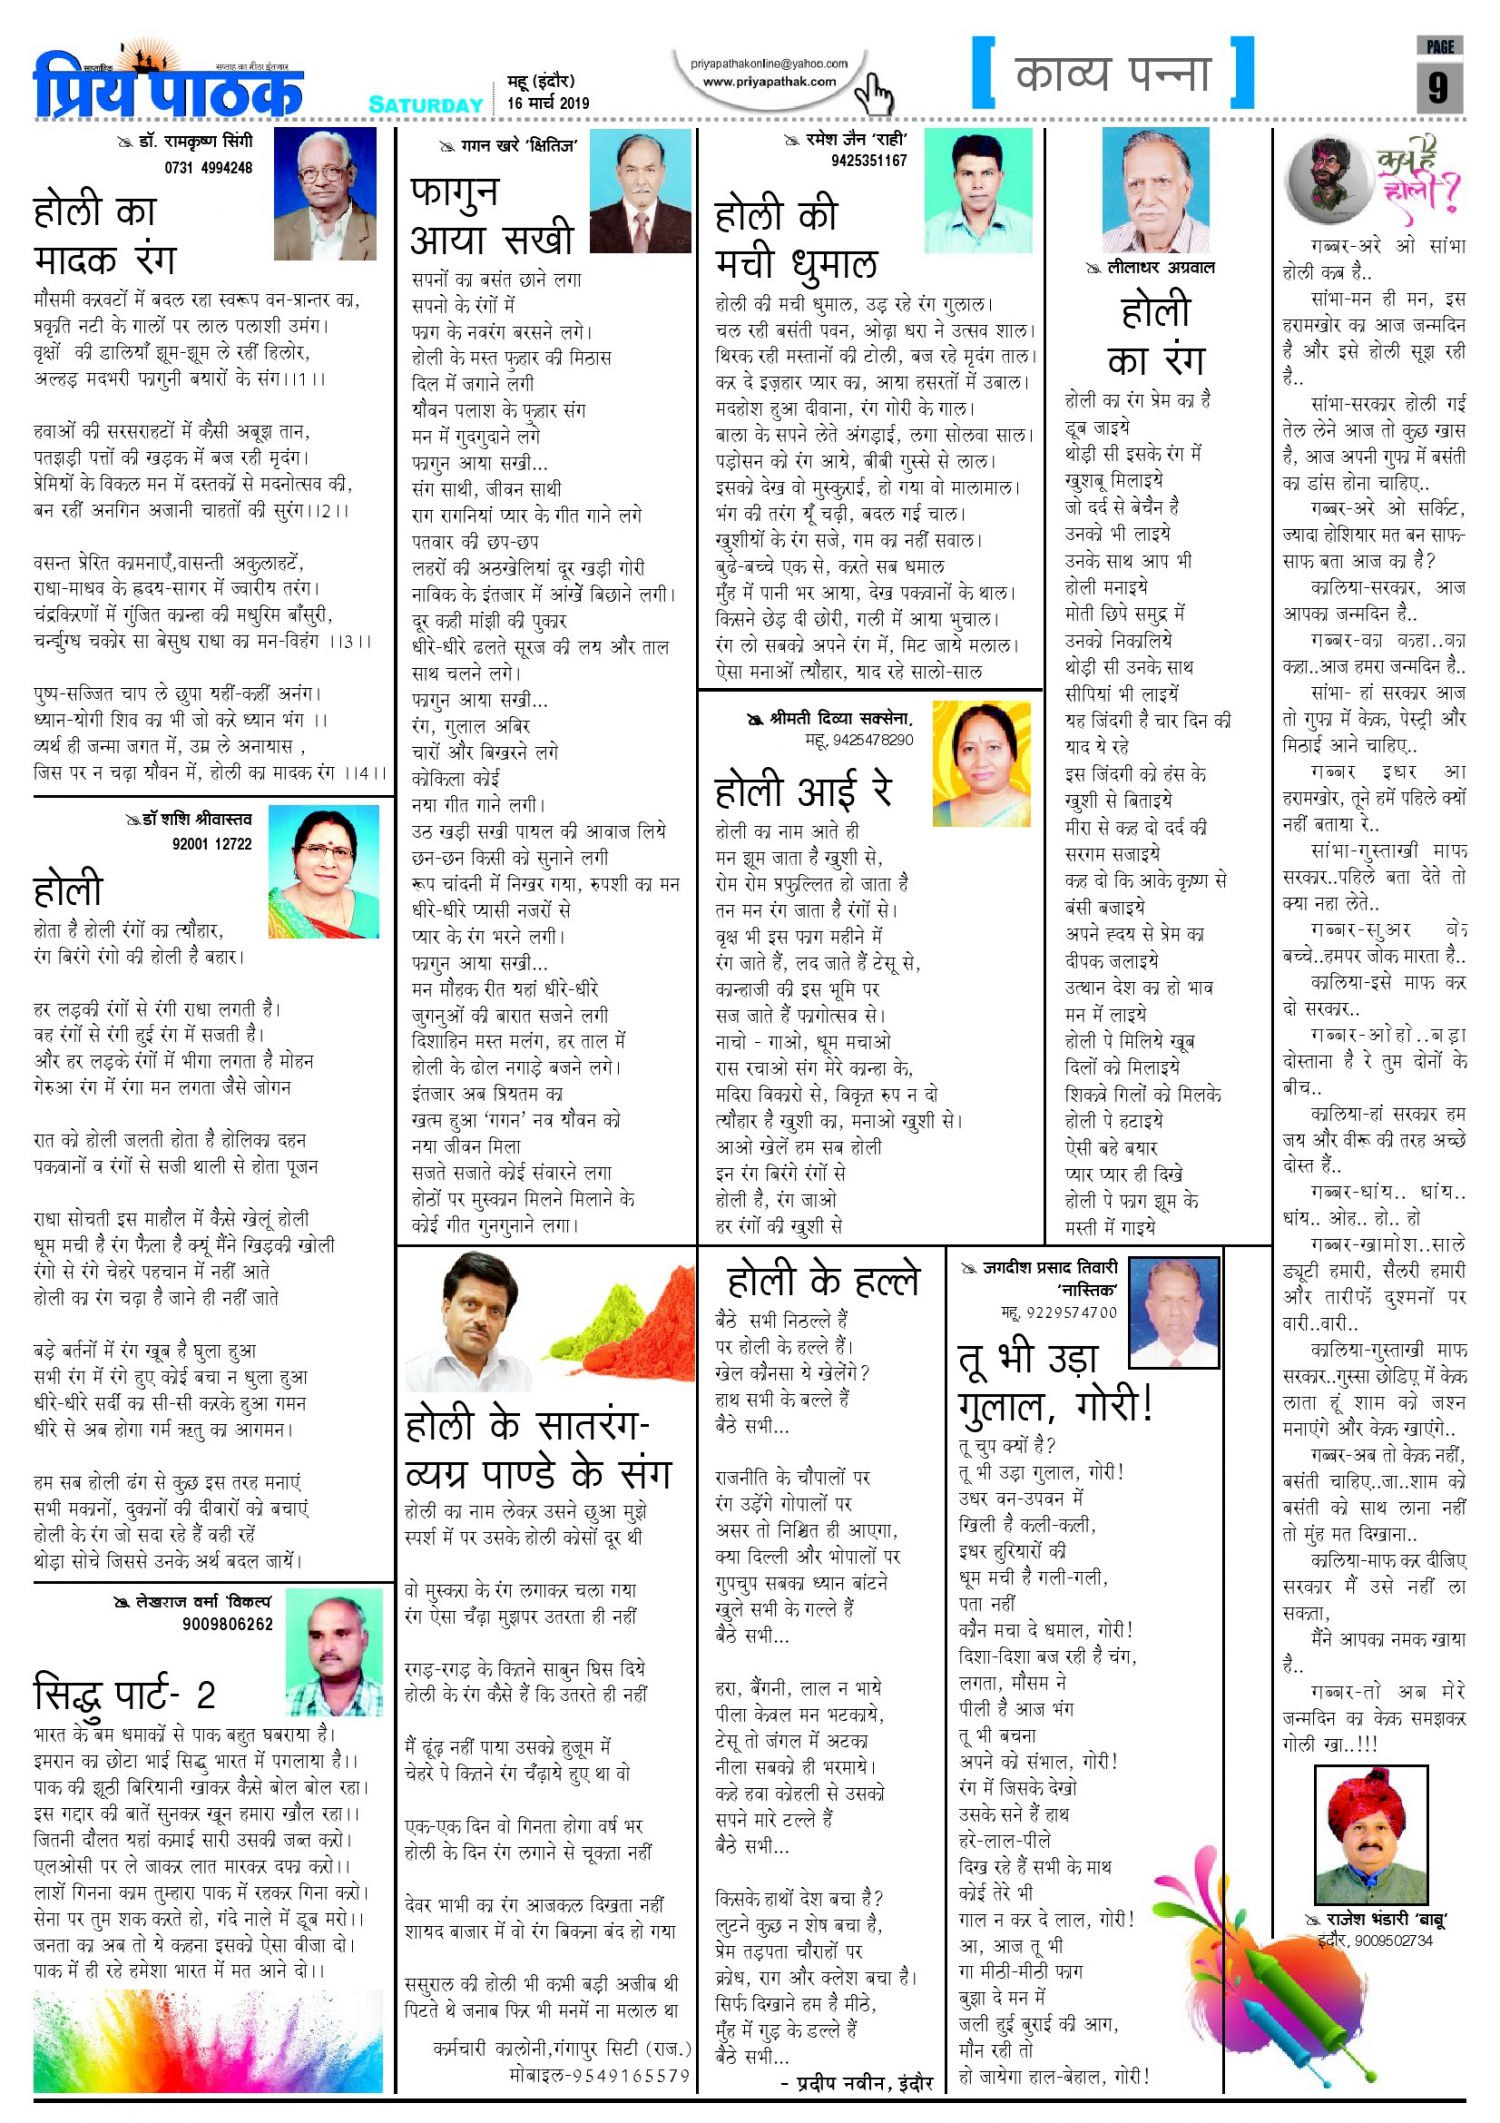 साप्ताहिक
सप्ताह का मीठा इंतजार
प्रिय पाठक
SATURDAY
महू (इंदौर)
16 मार्च 2019
priyapathakonline@yahoo.com
www.priyapathak.com
[ काव्य पन्ना ]
PAGE
9
डॉ. रामकृष्ण सिंगी
0731 4994248
होली का
मादक रंग
मौसमी करवटों में बदल रहा स्वरूप वन-प्रान्तर का,
प्रकृति नटी के गालों पर लाल पलाशी उमंग।
वृक्षों की डालियाँ झूम-झूम ले रहीं हिलोर,
अल्हड़ मदभरी फागुनी बयारों के संग।।1।।
हवाओं की सरसराहटों में कैसी अबूझ तान,
पतझड़ी पत्तों की खड़क में बज रही मृदंग।
प्रेमियों के विकल मन में दस्तकों से मदनोत्सव की,
बन रहीं अनगिन अजानी चाहतों की सुरंग।।2।।
वसन्त प्रेरित कामनाएँ,वासन्ती अकुलाहटें,
राधा-माधव के ह्रदय-सागर में ज्वारीय तरंग।
चंद्रकिरणों में गुंजित कान्हा की मधुरिम बाँसुरी,
चकोर सा बेसुध राधा का मन-विहंग ।।3।।
पुष्प-सज्जित चाप ले छुपा यहीं-कहीं अनंग।
ध्यान-योगी शिव का भी जो करे ध्यान भंग ।।
व्यर्थ ही जन्मा जगत में, उम्र ले अनायास ,
जिस पर न चढ़ा यौवन में, होली का मादक रंग ।।4।।
डॉ शशि श्रीवास्तव
92001 12722
होली
होता है होली रंगों का त्यौहार,
रंग बिरंगे रंगो की होली है बहार।
हर लड़की रंगों से रंगी राधा लगती है।
वह रंगों से रंगी हुई रंग में सजती है।
और हर लड़के रंगों में भीगा लगता है मोहन
गेरुआ रंग में रंगा मन लगता जैसे जोगन
रात को होली जलती होता है होलिका दहन
पकवानों व रंगों से सजी थाली से होता पूजन
राधा सोचती इस माहौल में कैसे खेलूं होली
धूम मची है रंग फैला है क्यूं मैंने खिड़की खोली
रंगो से रंगे चेहरे पहचान में नहीं आते
होली का रंग चढ़ा है जाने ही नहीं जाते
बड़े बर्तनों में रंग खूब है घुला हुआ
सभी रंग में रंगे हुए कोई बचा न धुला हुआ
धीरे-धीरे सर्दी का सी-सी करके हुआ गमन
धीरे से अब होगा गर्म ऋतु का आगमन।
हम सब होली ढंग से कुछ इस तरह मनाएं
सभी मकानों, दुकानों की दीवारों को बचाएं
होली के रंग जो सदा रहे हैं वही रहें
थोड़ा सोचे जिससे उनके अर्थ बदल जायें।
लेखराज वर्मा 'विकल्प'
9009806262
सिद्धु पार्ट- 2
भारत के बम धमाकों से पाक बहुत घबराया है।
इमरान का छोटा भाई सिद्धु भारत में पगलाया है।।
पाक की झूठी बिरियानी खाकर कैसे बोल बोल रहा।
इस गद्दार की बातें सुनकर खून हमारा खौल रहा।।
जितनी दौलत यहां कमाई सारी उसकी जब्त करो।
एलओसी पर ले जाकर लात मारकर दफा करो।।
लाशें गिनना काम तुम्हारा पाक में रहकर गिना करो।
सेना पर तुम शक करते हो, गंदे नाले में डूब मरो।।
जनता का अब तो ये कहना इसको ऐसा वीजा दो।
पाक में ही रहे हमेशा भारत में मत आने दो।।
गगन खरे 'क्षितिज'
फागुन
आया सखी
सपनों का बसंत छाने लगा
सपनो के रंगों में
फाग के नवरंग बरसने लगे।
होली के मस्त फुहार की मिठास
दिल में जगाने लगी
यौवन पलाश के फुहार संग
मन में गुदगुदाने लगे
फागुन आया सखी...
संग साथी, जीवन साथी
राग रागनियां प्यार के गीत गाने लगे
पतवार की छप-छप
लहरों की अठखेलियां दूर खड़ी गोरी
नाविक के इंतजार में आंखें बिछाने लगी।
दूर कही मांझी की पुकार
धीरे-धीरे ढलते सूरज की लय और ताल
साथ चलने लगे।
फागुन आया सखी...
रंग, गुलाल अबिर
चारों और बिखरने लगे
कोकिला कोई
नया गीत गाने लगी।
उठ खड़ी सखी पायल की आवाज लिये
छन-छन किसी को सुनाने लगी
रूप चांदनी में निखर गया, रुपशी का मन
धीरे-धीरे प्यासी नजरों से
प्यार के रंग भरने लगी।
फागुन आया सखी...
मन मौहक रीत यहां धीरे-धीरे
जुगनुओं की बारात सजने लगी
दिशाहिन मस्त मलंग, हर ताल में
होली के ढोल नगाड़े बजने लगे।
इंतजार अब प्रियतम का
खत्म हुआ 'गगन' नव यौवन को
नया जीवन मिला
सजते सजाते कोई संवारने लगा
होठों पर मुस्कान मिलने मिलाने के
कोई गीत गुनगुनाने लगा।
होली के सातरंग-
व्यग्र पाण्डे के संग
होली का नाम लेकर उसने छुआ मुझे
स्पर्श में पर उसके होली कोसों दूर थी
वो मुस्करा के रंग लगाकर चला गया
रंग ऐसा चँढ़ा मुझपर उतरता ही नहीं
रगड़-रगड़ के कितने साबुन घिस दिये
होली के रंग कैसे हैं कि उतरते ही नहीं
मैं ढूंढ़ नहीं पाया उसको हुजूम में
चेहरे पे कितने रंग चँढ़ाये हुए था वो
एक-एक दिन वो गिनता होगा वर्ष भर
होली के दिन रंग लगाने से चूकता नहीं
देवर भाभी का रंग आजकल दिखता नहीं
शायद बाजार में वो रंग बिकना बंद हो गया
ससुराल की होली भी कभी बड़ी अजीब थी
पिटते थे जनाब फिर भी मनमें ना मलाल था
कर्मचारी कालोनी,गंगापुर सिटी (राज.)
मोबाइल-9549165579
रमेश जैन 'राही'
9425351167
होली की
मची धुमाल
होली की मची धुमाल, उड़ रहे रंग गुलाल।
चल रही बसंती पवन, ओढ़ा धरा ने उत्सव शाल।
थिरक रही मस्तानों की टोली, बज रहे मृदंग ताल।
कर दे इज़हार प्यार का, आया हसरतों में उबाल।
मदहोश हुआ दीवाना, रंग गोरी के गाल।
बाला के सपने लेते अंगड़ाई, लगा सोलवा साल।
पड़ोसन को रंग आये, बीबी गुस्से से लाल।
इसको देख वो मुस्कुराई, हो गया वो मालामाल।
भंग की तरंग यूँ चढ़ी, बदल गई चाल।
खुशीयों के रंग सजे, गम का नहीं सवाल।
बुढे-बच्चे एक से, करते सब धमाल
मुँह में पानी भर आया, देख पकवानों के थाल।
किसने छेड़ दी छोरी, गली में आया भुचाल।
रंग लो सबको अपने रंग में, मिट जाये मलाल।
ऐसा मनाओं त्यौहार, याद रहे सालो-साल
श्रीमती दिव्या सक्सेना,
महू, 9425478290
होली आई रे
होली का नाम आते ही
मन झूम जाता है खुशी से,
रोम रोम प्रफुल्लित हो जाता है
तन मन रंग जाता है रंगों से।
वृक्ष भी इस फाग महीने में
रंग जाते हैं, लद जाते हैं टेसू से,
कान्हाजी की इस भूमि पर
सज जाते हैं फागोत्सव से।
नाचो - गाओ, धूम मचाओ
रास रचाओ संग मेरे कान्हा के,
मदिरा विकारो से, विकृत रुप न दो
त्यौहार है खुशी का, मनाओ खुशी से।
आओ खेलें हम सब होली
इन रंग बिरंगे रंगों से
होली है, रंग जाओ
हर रंगों की खुशी से
होली के हल्ले
बैठे सभी निठल्ले हैं
पर होली के हल्ले हैं।
खेल कौनसा ये खेलेंगे?
हाथ सभी के बल्ले हैं
बैठे सभी...
राजनीति के चौपालों पर
रंग उड़ेंगे गोपालों पर
असर तो निश्चित ही आएगा,
क्या दिल्ली और भोपालों पर
गुपचुप सबका ध्यान बांटने
खुले सभी के गल्ले हैं
बैठे सभी...
हरा, बैंगनी, लाल न भाये
पीला केवल मन भटकाये,
टेसू तो जंगल में अटका
नीला सबको ही भरमाये।
कहे हवा कोहली से उसको
सपने मारे टल्ले हैं
बैठे सभी...
किसके हाथों देश बचा है?
लुटने कुछ न शेष बचा है,
प्रेम तड़पता चौराहों पर
क्रोध, राग और क्लेश बचा है।
सिर्फ दिखाने हम है मीठे,
मुँह में गुड़ के डल्ले हैं
बैठे सभी...
- प्रदीप नवीन, इंदौर
लीलाधर अग्रवाल
होली
का रंग
होली का रंग प्रेम का है
डूब जाइये
थोड़ी सी इसके रंग में
खुशबू मिलाइये
जो दर्द से बेचैन है
उनको भी लाइये
उनके साथ आप भी
होली मनाइये
मोती छिपे समुद्र में
उनको निकालिये
थोड़ी सी उनके साथ
सीपियां भी लाइयें
यह जिंदगी है चार दिन की
याद ये रहे
इस जिंदगी को हंस के
खुशी से बिताइये
मीरा से कह दो दर्द की
सरगम सजाइये
कह दो कि आके कृष्ण से
बंसी बजाइये
अपने ह्दय से प्रेम का
दीपक जलाइये
उत्थान देश का हो भाव
मन में लाइये
होली पे मिलिये खूब
दिलों को मिलाइये
शिकवे गिलों को मिलके
होली पे हटाइये
ऐसी बहे बयार
प्यार प्यार ही दिखे
होली पे फाग झूम के
मस्ती में गाइये
जगदीश प्रसाद तिवारी
'नास्तिक'
महू, 9229574700
तू भी उड़ा
गुलाल, गोरी!
तू चुप क्यों है?
तू भी उड़ा गुलाल, गोरी!
उधर वन-उपवन में
खिली है कली-कली,
इधर हुरियारों की
धूम मची है गली-गली,
पता नहीं
कौन मचा दे धमाल, गोरी!
दिशा-दिशा बज रही है चंग,
लगता, मौसम ने
पीली है आज भंग
तू भी बचना
अपने को संभाल, गोरी!
रंग में जिसके देखो
उसके सने हैं हाथ
हरे-लाल-पीले
दिख रहे हैं सभी के माथ
कोई तेरे भी
गाल न कर दे लाल, गोरी!
आ, आज तू भी
गा मीठी-मीठी फाग
बुझा दे मन में
जली हुई बुराई की आग,
मौन रही तो
हो जायेगा हाल-बेहाल, गोरी!
कब है
होली?
गब्बर-अरे ओ सांभा
होली कब है..
सांभा-मन ही मन, इस
हरामखोर का आज जन्मदिन
है और इसे होली सूझ रही
है..
सांभा-सरकार होली गई
तेल लेने आज तो कुछ खास
है, आज अपनी गुफा में बसंती
का डांस होना चाहिए..
गब्बर-अरे ओ सर्किट,
ज्यादा होशियार मत बन साफ-
साफ बता आज का है?
कालिया-सरकार, आज
आपका जन्मदिन है..
गब्बर-का कहा..का
कहा..आज हमरा जन्मदिन है..
सांभा- हां सरकार आज
तो गुफा में केक, पेस्ट्री और
मिठाई आने चाहिए..
गब्बर इधर आ
हरामखोर, तूने हमें पहिले क्यों
नहीं बताया रे..
सांभा-गुस्ताखी माफ
सरकार..पहिले बता देते तो
क्या नहा लेते..
गब्बर-सुअर के
बच्चे..हमपर जोक मारता है..
कालिया-इसे माफ कर
दो सरकार..
गब्बर-ओहो..बड़ा
दोस्ताना है रे तुम दोनों के
बीच..
कालिया-हां सरकार हम
जय और वीरू की तरह अच्छे
दोस्त हैं..
गब्बर-धांय.. धांय..
धांय.. ओह.. हो.. हो
गब्बर-खामोश..साले
ड्यूटी हमारी, सैलरी हमारी
और तारीफें दुश्मनों पर
वारी..वारी..
कालिया-गुस्ताखी माफ
सरकार..गुस्सा छोडिए़ में केक
लाता हूं शाम को जश्न
मनाएंगे और केक खाएंगे..
गब्बर-अब तो केक नहीं,
बसंती चाहिए..जा..शाम को
बसंती को साथ लाना नहीं
तो मुंह मत दिखाना..
कालिया-माफ कर दीजिए
सरकार मैं उसे नहीं ला
सकता,
मैंने आपका नमक खाया
है..
गब्बर-तो अब मेरे
जन्मदिन का केक समझकर
गोली खा..!!!
राजेश भंडारी 'बाबू'
इंदौर, 9009502734